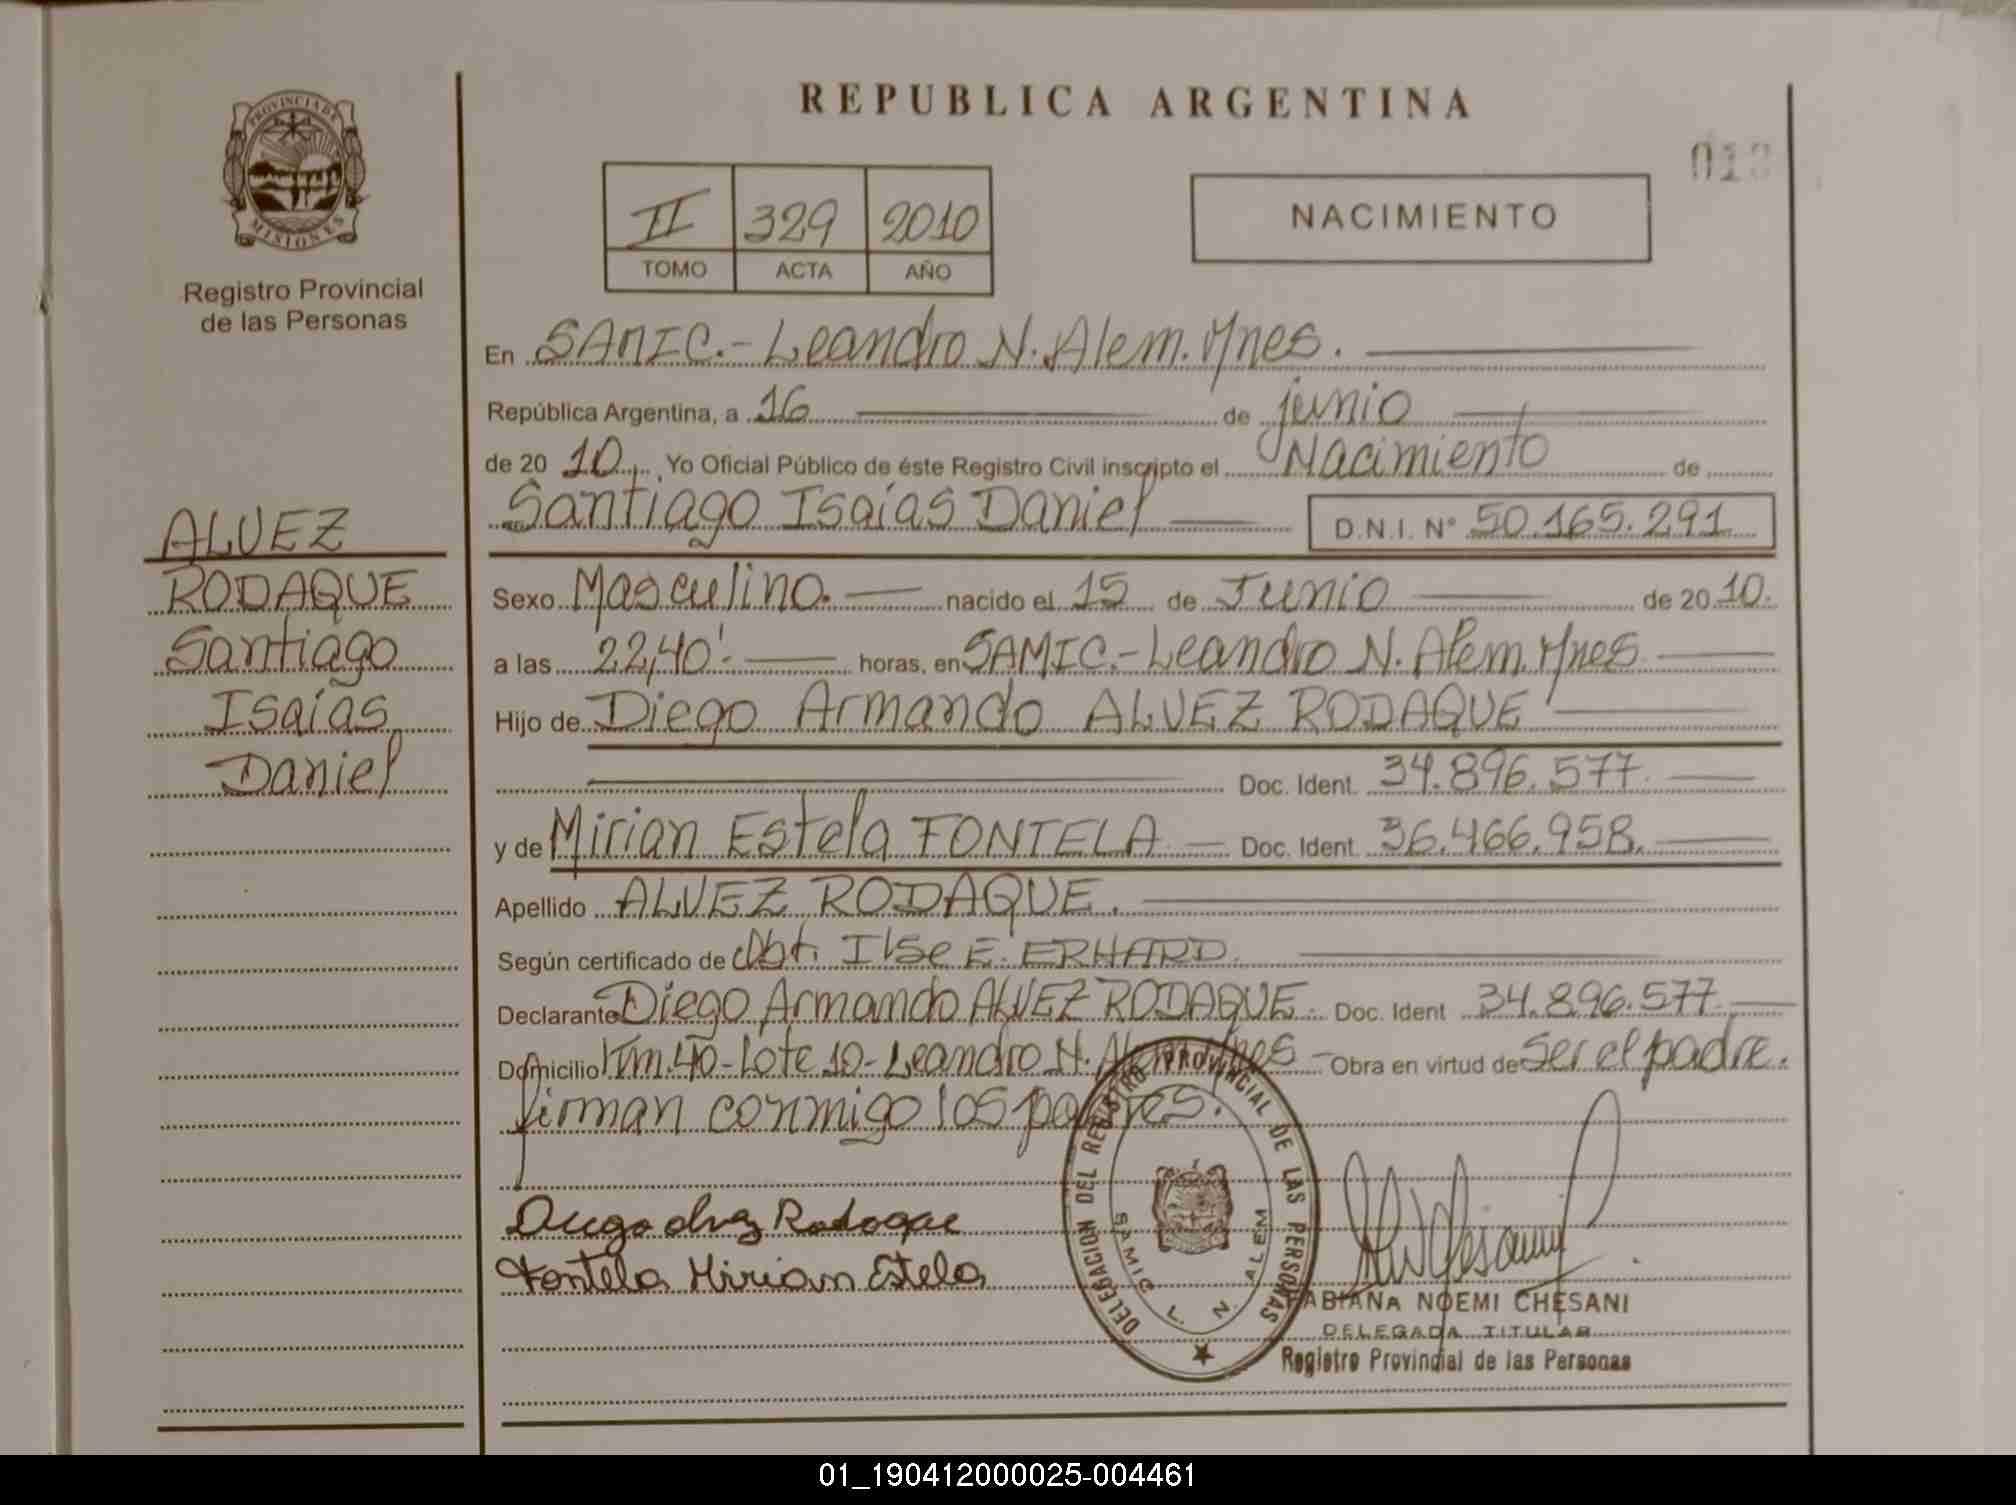 REPUBLICA ARGENTINA
PROVINCIA DE MISIONES
Registro Provincial
de las Personas
II 329 2010
TOMO ACTA AÑO
NACIMIENTO
ALVEZ
RODAQUE
Santiago
Isaías
Daniel
En SAMIC.- Leandro N. Alem. Mnes.
República Argentina, a 16 de junio
de 2010 Yo Oficial Público de éste Registro Civil inscripto el Nacimiento de
Santiago Isaías Daniel D.N.I. N° 50.165.291
Sexo Masculino. nacido el 15 de Junio de 2010.
a las 22,40'- horas, en SAMIC.- Leandro N. Alem. Mnes
Hijo de Diego Armando ALVEZ RODAQUE
Doc. Ident. 34.896.577.
y de Mirian Estela FONTELA Doc. Ident. 36.466.958.
Apellido ALVEZ RODAQUE.
Según certificado de Obt. Ilse E. ERHARD.
Declarante Diego Armando ALVEZ RODAQUE. Doc. Ident 34.896.577.
Domicilio Km.40-Lote 10-Leandro N. Alem. Mnes - Obra en virtud de Ser el padre.
firman conmigo los padres.
Diego Alvez Rodaque
Fontela Mirian Estela
DELEGACION DEL REGISTRO PROVINCIAL DE LAS PERSONAS
SAMIC L. N. ALEM
FABIANA NOEMI CHESANI
DELEGADA TITULAR
Registro Provincial de las Personas
01_190412000025-004461